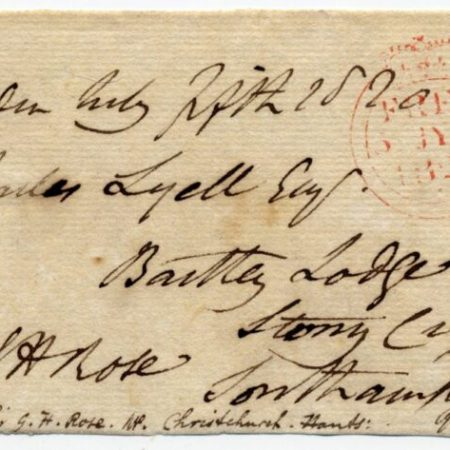 don July fifth 1820
arles Lyell Esq.
Bartley Lodge
Stony C
H Rose
Southamp
G. H. Rose. MP. Christchurch. Hants:
FRE
5 JY
182